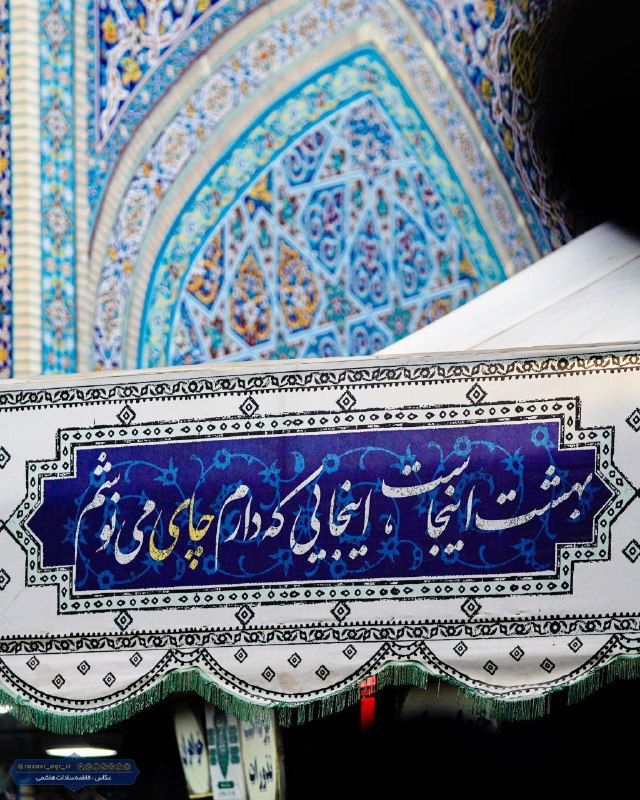 بهشت اینجاست، اینجایی که دارم چای می نوشم
نذورات
@razavi_aqr_ir
عکاس : فاطمه سادات هاشمی